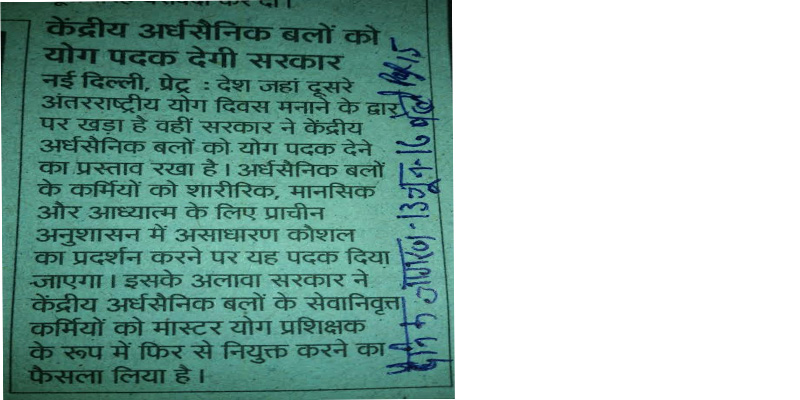 केंद्रीय अर्धसैनिक बलों को
योग पदक देगी सरकार
नई दिल्ली, प्रेट्र : देश जहां दूसरे
अंतरराष्ट्रीय योग दिवस मनाने के द्वार
पर खड़ा है वहीं सरकार ने केंद्रीय
अर्धसैनिक बलों को योग पदक देने
का प्रस्ताव रखा है। अर्धसैनिक बलों
के कर्मियों को शारीरिक, मानसिक
और आध्यात्म के लिए प्राचीन
अनुशासन में असाधारण कौशल
का प्रदर्शन करने पर यह पदक दिया
जाएगा। इसके अलावा सरकार ने
केंद्रीय अर्धसैनिक बलों के सेवानिवृत्त
कर्मियों को मास्टर योग प्रशिक्षक
के रूप में फिर से नियुक्त करने का
फैसला लिया है।
दैनिक जागरण-13जून-16 15